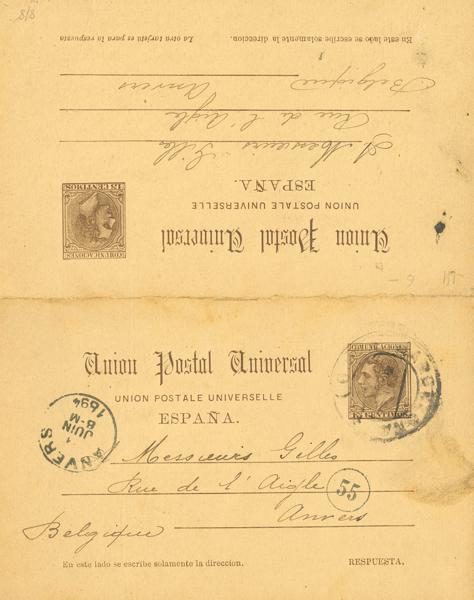 8/8
En este lado se escribe solamente la direccion.
La otra tarjeta es para la respuesta
Belgique
Anvers
Rue de l'Aigle
A Messieurs Gilles
ESPAÑA.
UNION POSTALE UNIVERSELLE
Union Postal Universal
COMUNICACIONES
15 CENTIMOS
Union Postal Universal
UNION POSTALE UNIVERSELLE
ESPAÑA.
COMUNICACIONES
15 CENTIMOS
ANVERS
1
JUIN
8-M
1894
Messieurs Gilles
Rue de l'Aigle
55
Anvers
Belgique
En este lado se escribe solamente la direccion.
RESPUESTA.